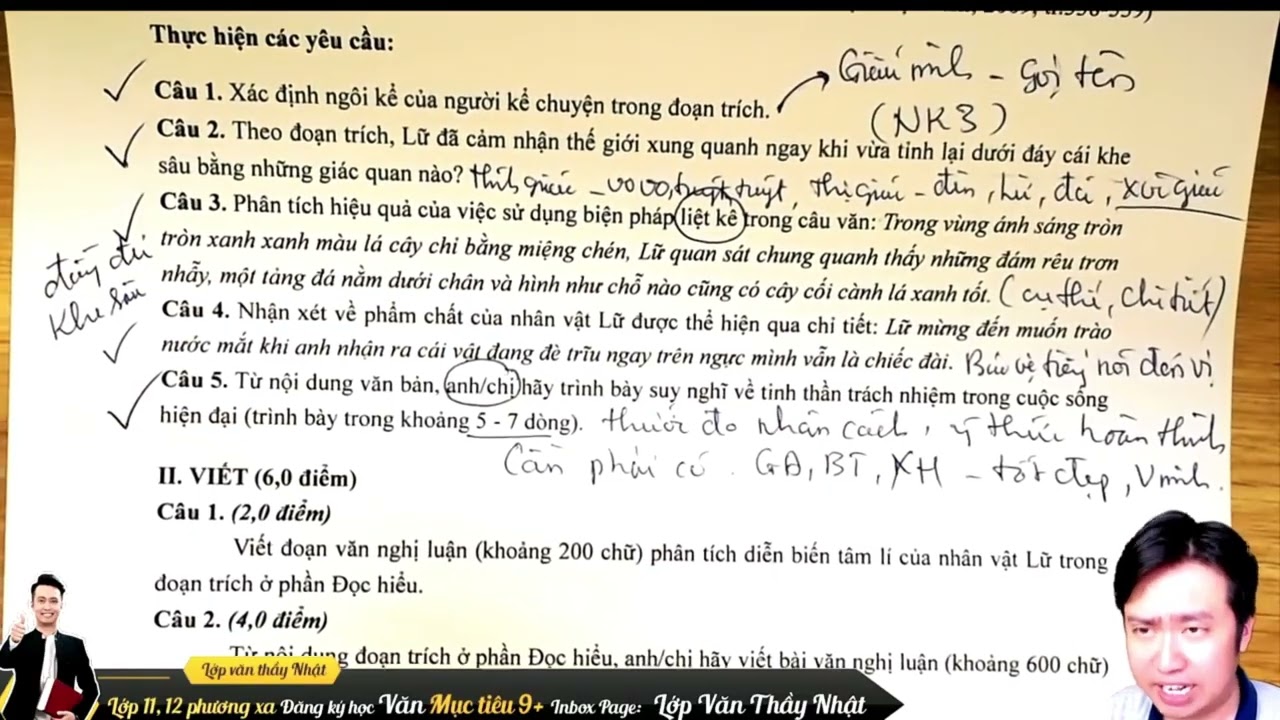 Thực hiện các yêu cầu:
Giấu mình - Gọi tên
(NK3)
Câu 1. Xác định ngôi kể của người kể chuyện trong đoạn trích.
Câu 2. Theo đoạn trích, Lữ đã cảm nhận thế giới xung quanh ngay khi vừa tỉnh lại dưới đáy cái khe
sâu bằng những giác quan nào? thính giác - vo vo, tuýt, thị giác - đèn, Lữ, đá, xúc giác
Câu 3. Phân tích hiệu quả của việc sử dụng biện pháp liệt kê trong câu văn: Trong vùng ánh sáng tròn
tròn xanh xanh màu lá cây chỉ bằng miệng chén, Lữ quan sát chung quanh thấy những đám rêu trơn
nhẫy, một tảng đá nằm dưới chân và hình như chỗ nào cũng có cây cối cành lá xanh tốt. (cụ thể, chi tiết)
đầy đủ
khe sâu
Câu 4. Nhận xét về phẩm chất của nhân vật Lữ được thể hiện qua chi tiết: Lữ mừng đến muốn trào
nước mắt khi anh nhận ra cái vật đang đè trĩu ngay trên ngực mình vẫn là chiếc đài. Bảo vệ tiếng nói đơn vị
Câu 5. Từ nội dung văn bản, anh/chị hãy trình bày suy nghĩ về tinh thần trách nhiệm trong cuộc sống
hiện đại (trình bày trong khoảng 5 - 7 dòng). thước đo nhân cách, ý thức hoàn thành
Cần phải có. GĐ, BT, XH - tốt đẹp, Vminh.
II. VIẾT (6,0 điểm)
Câu 1. (2,0 điểm)
Viết đoạn văn nghị luận (khoảng 200 chữ) phân tích diễn biến tâm lí của nhân vật Lữ trong
đoạn trích ở phần Đọc hiểu.
Câu 2. (4,0 điểm)
Từ nội dung đoạn trích ở phần Đọc hiểu, anh/chị hãy viết bài văn nghị luận (khoảng 600 chữ)
Lớp văn thầy Nhật
Lớp 11, 12 phương xa Đăng ký học Văn Mục tiêu 9+ Inbox Page: Lớp Văn Thầy Nhật